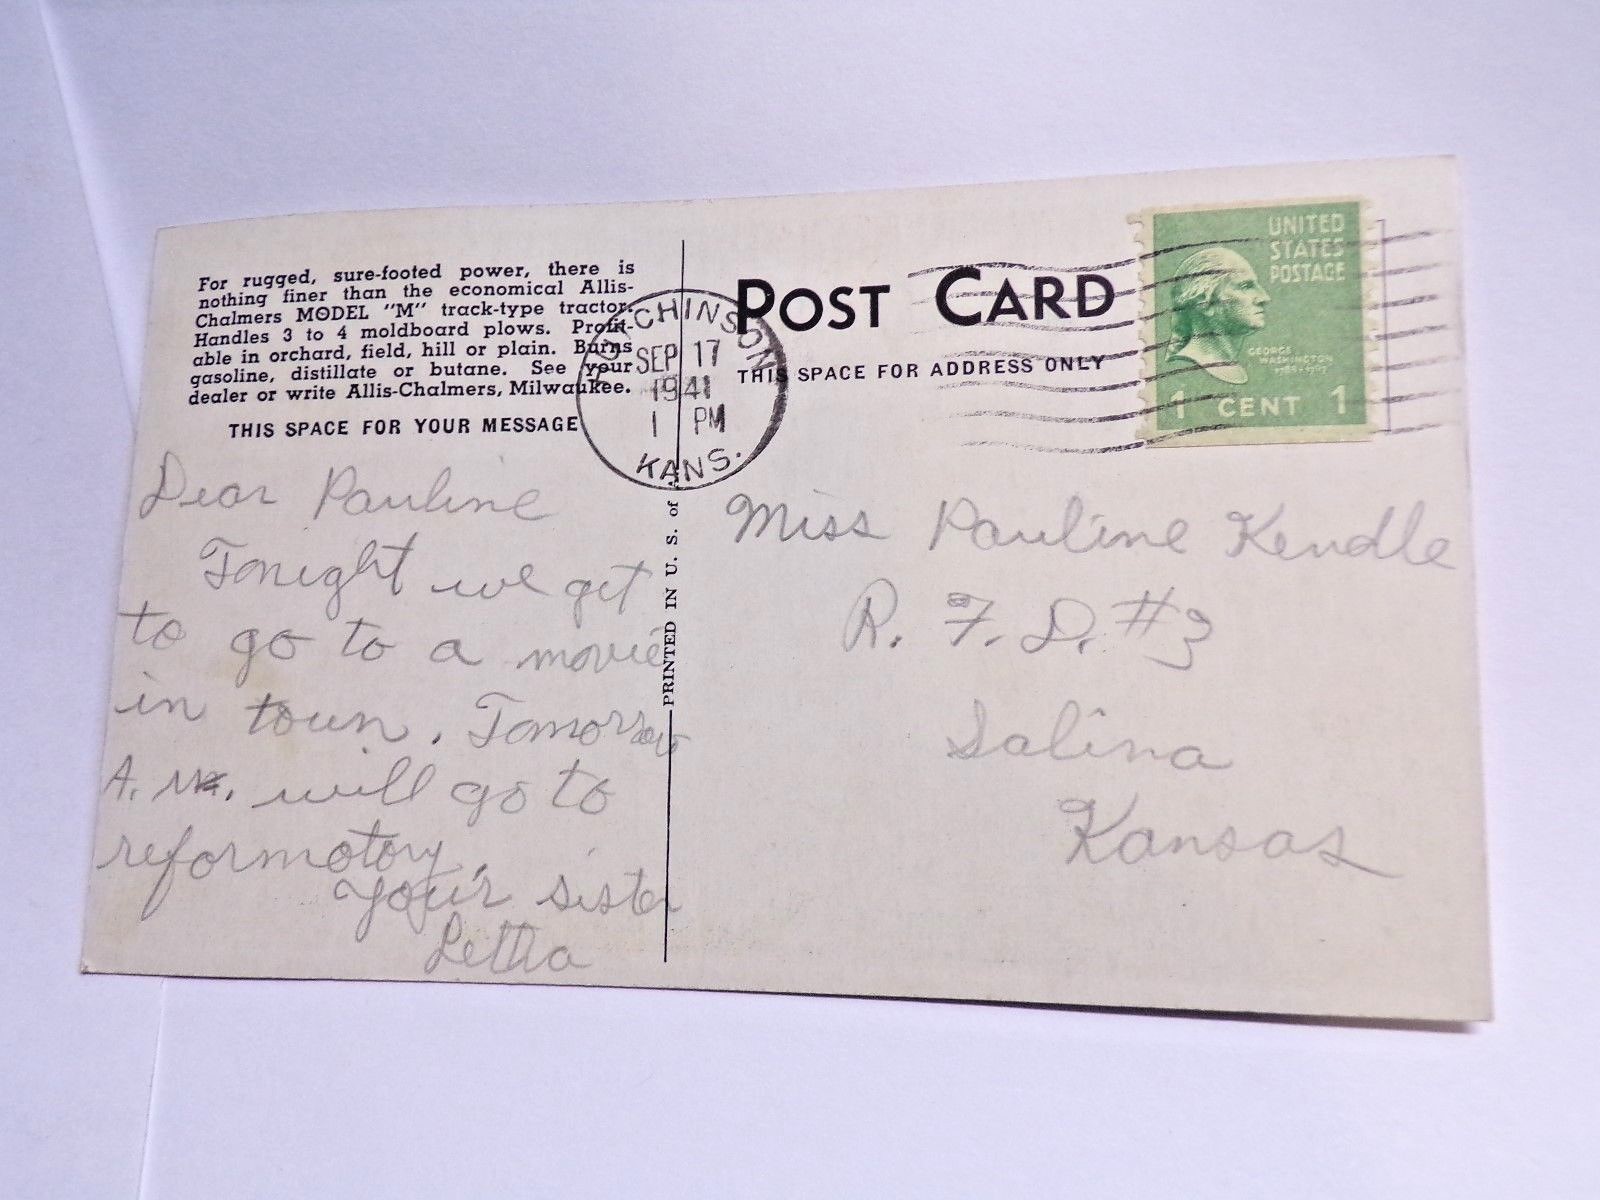 For rugged, sure-footed power, there is
nothing finer than the economical Allis-
Chalmers MODEL "M" track-type tractor.
Handles 3 to 4 moldboard plows. Profit-
able in orchard, field, hill or plain. Burns
gasoline, distillate or butane. See your
dealer or write Allis-Chalmers, Milwaukee.
THIS SPACE FOR YOUR MESSAGE
Dear Pauline
Tonight we get
to go to a movie
in town. Tomorrow
A. M. will go to
reformotory.
Your sister
Letha
PRINTED IN U. S. of A.
HUTCHINSON
SEP 17
1941
1 PM
KANS.
POST CARD
THIS SPACE FOR ADDRESS ONLY
UNITED
STATES
POSTAGE
GEORGE
WASHINGTON
1789-1797
1 CENT 1
Miss Pauline Kendle
R. F. D. #3
Salina
Kansas